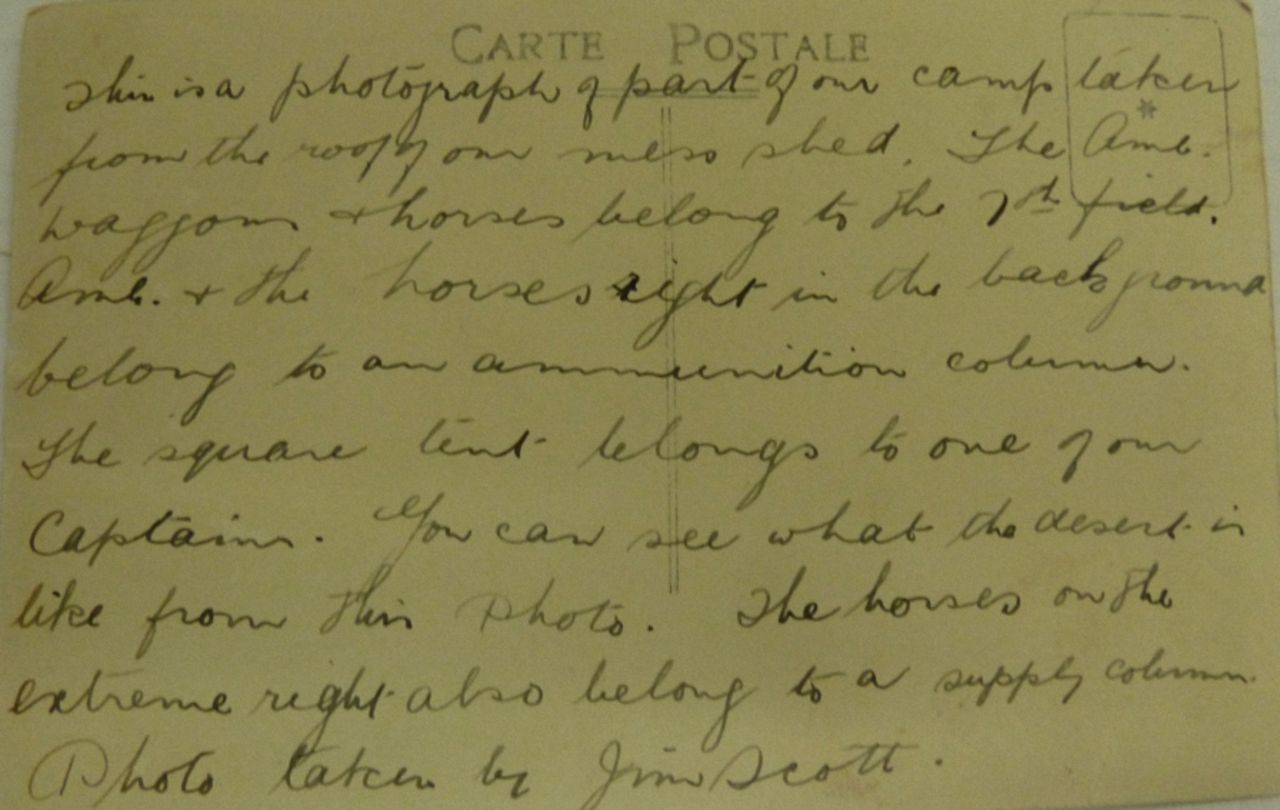 CARTE POSTALE
This is a photograph of part of our camp taken
from the roof of our mess shed. The Amb.
waggons & horses belong to the 7th field.
Amb. & the horses right in the background
belong to an ammunition column.
The square tent belongs to one of our
Captains. You can see what the desert is
like from this Photo. The horses on the
extreme right also belong to a supply column.
Photo taken by Jim Scott.